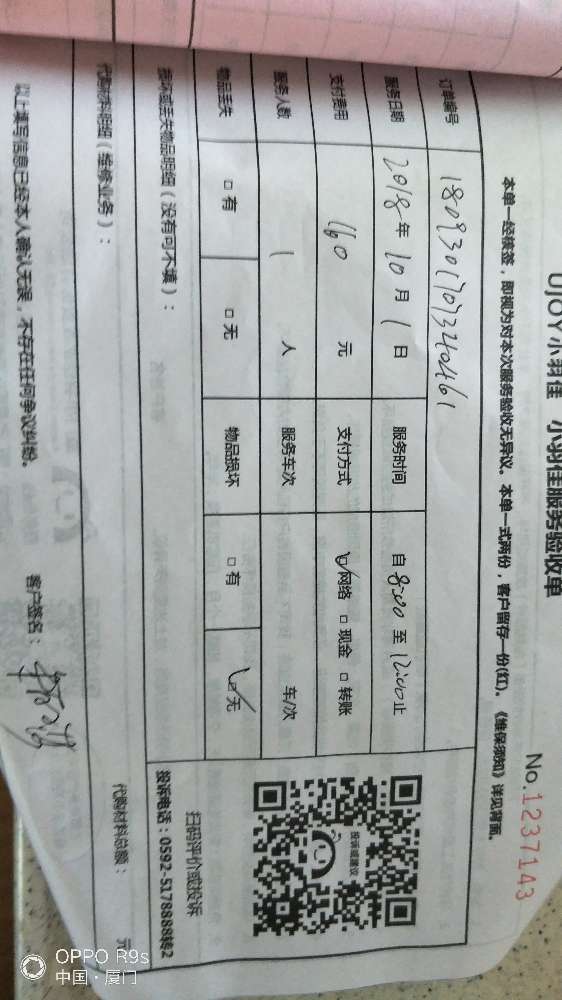 UJOY小羽佳 小羽佳服务验收单
No.1237143
本单一经核签，即视为对本次服务验收无异议。本单一式两份，客户留存一份(红)。《维保须知》详见背面。
订单编号 18093017073240461
服务日期 2018年10月1日 服务时间 自8:00至12:00止
支付费用 160元 支付方式 ☑网络 □现金 □转账
服务人数 1人 服务车次 车/次
物品丢失 □有 □无 物品损坏 □有 ☑无
损坏或丢失物品明细（没有可不填）：
投诉或建议
扫码评价或投诉
投诉电话：0592-5178888转2
代购材料明细（维修业务）：
代购材料总额： 元
以上填写信息已经本人确认无误，不存在任何争议纠纷。 客户签名：
OPPO R9s
中国·厦门